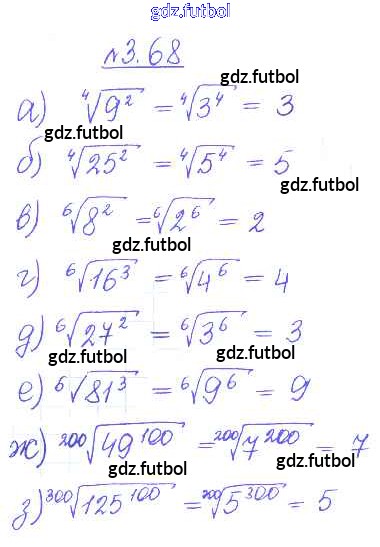 gdz.futbol
№3.68
gdz.futbol
а) ⁴√9² = ⁴√3⁴ = 3
gdz.futbol
б) ⁴√25² = ⁴√5⁴ = 5
gdz.futbol
в) ⁶√8² = ⁶√2⁶ = 2
gdz.futbol
г) ⁶√16³ = ⁶√4⁶ = 4
gdz.futbol
д) ⁶√27² = ⁶√3⁶ = 3
gdz.futbol
gdz.futbol
е) ⁶√81³ = ⁶√9⁶ = 9
gdz.futbol
ж) ²⁰⁰√49¹⁰⁰ = ²⁰⁰√7²⁰⁰ = 7
gdz.futbol
з) ³⁰⁰√125¹⁰⁰ = ³⁰⁰√5³⁰⁰ = 5
gdz.futbol